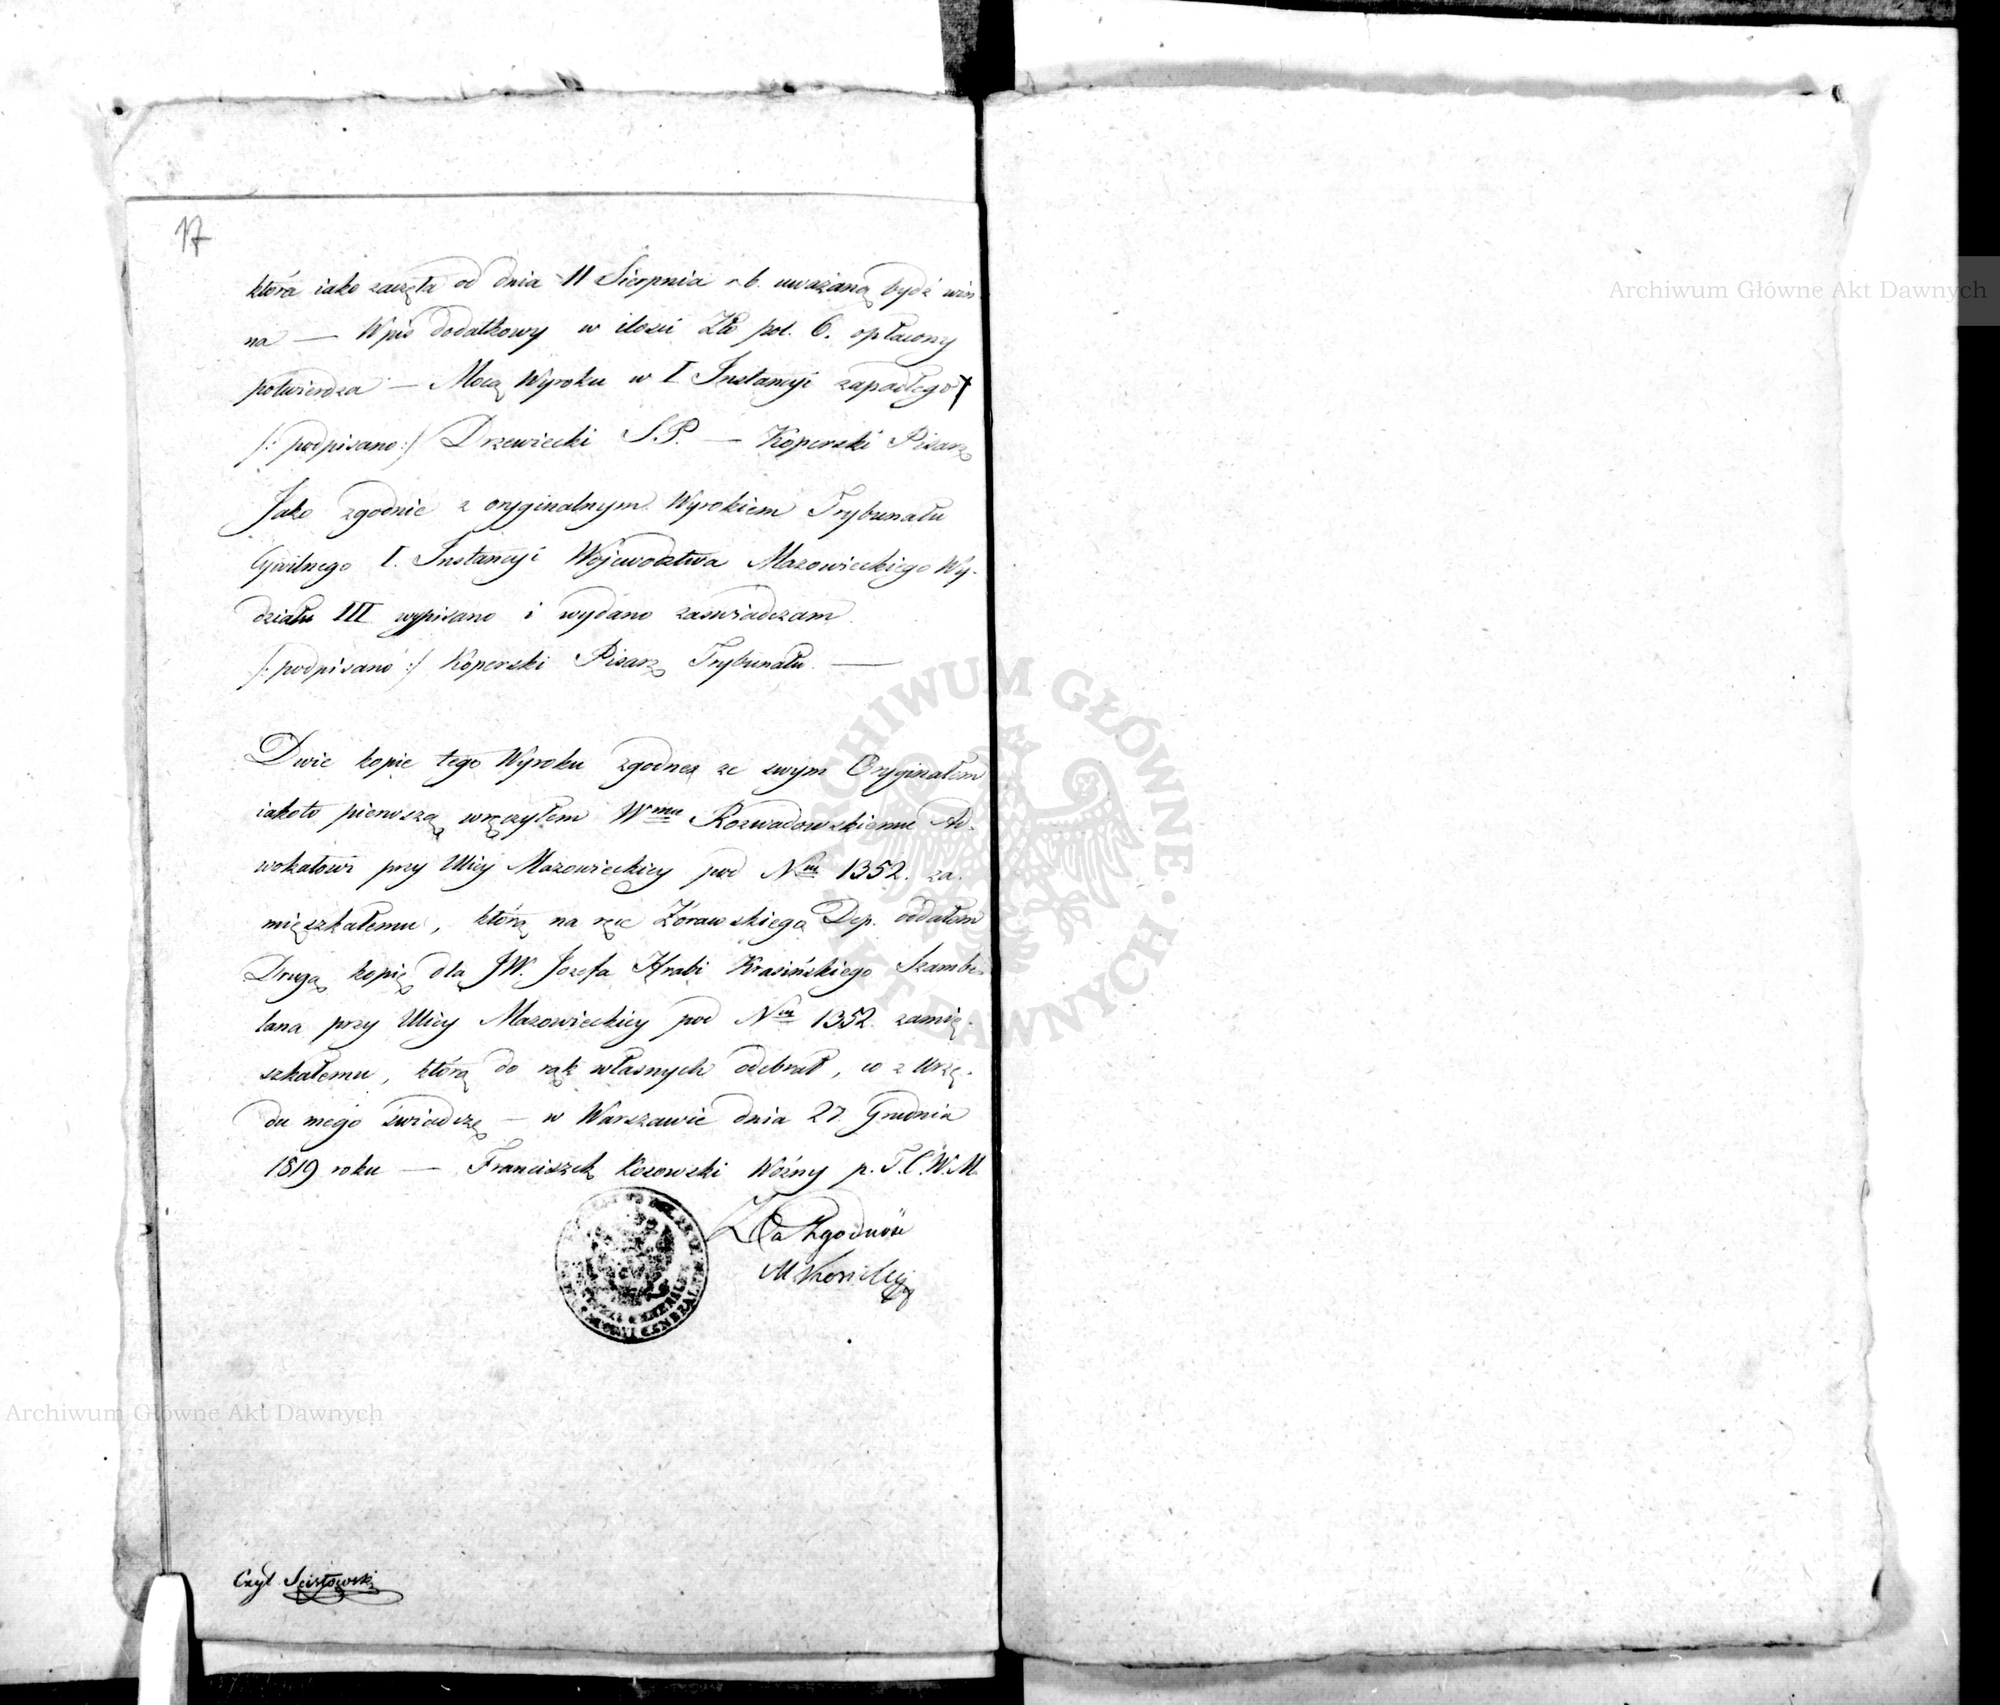 17
która iako zaczęta od dnia 11 Sierpnia r.b. uważaną bydź win-
na — Wpis dodatkowy w ilości Złł pol. 6. opłacony
potwierdza — Mocą Wyroku w I Instancyi zapadłego
/: podpisano :/ Drzewiecki S.P. — Koperski Pisarz
Jako zgodnie z oryginalnym Wyrokiem Trybunału
Cywilnego I. Instancyi Województwa Mazowieckiego Wy-
działu III wypisano i wydano zaświadczam
/: podpisano :/ Koperski Pisarz Trybunału. —
Dwie kopie tego Wyroku zgodne ze swym Oryginałem
iakoto pierwszą wręczyłem Wmu Rozwadowskiemu Ad-
wokatowi przy Ulicy Mazowieckiey pod Nm 1352. za-
mięszkałemu, którą na ręce Żórawskiego Dep. oddałem
Drugą kopię dla JW. Jozefa Hrabi Krasińskiego Szambe-
lana przy Ulicy Mazowieckiey pod Nm 1352. zamię-
szkałemu, którą do rąk własnych odebrał, co z Urzę-
du mego świadczę — w Warszawie dnia 27 Grudnia
1819 roku — Franciszek Kosowski Woźny p. T.C.W.M.
Za Zgodność
Czyt.
Archiwum Główne Akt Dawnych
Archiwum Główne Akt Dawnych
ARCHIWUM GŁÓWNE AKT DAWNYCH